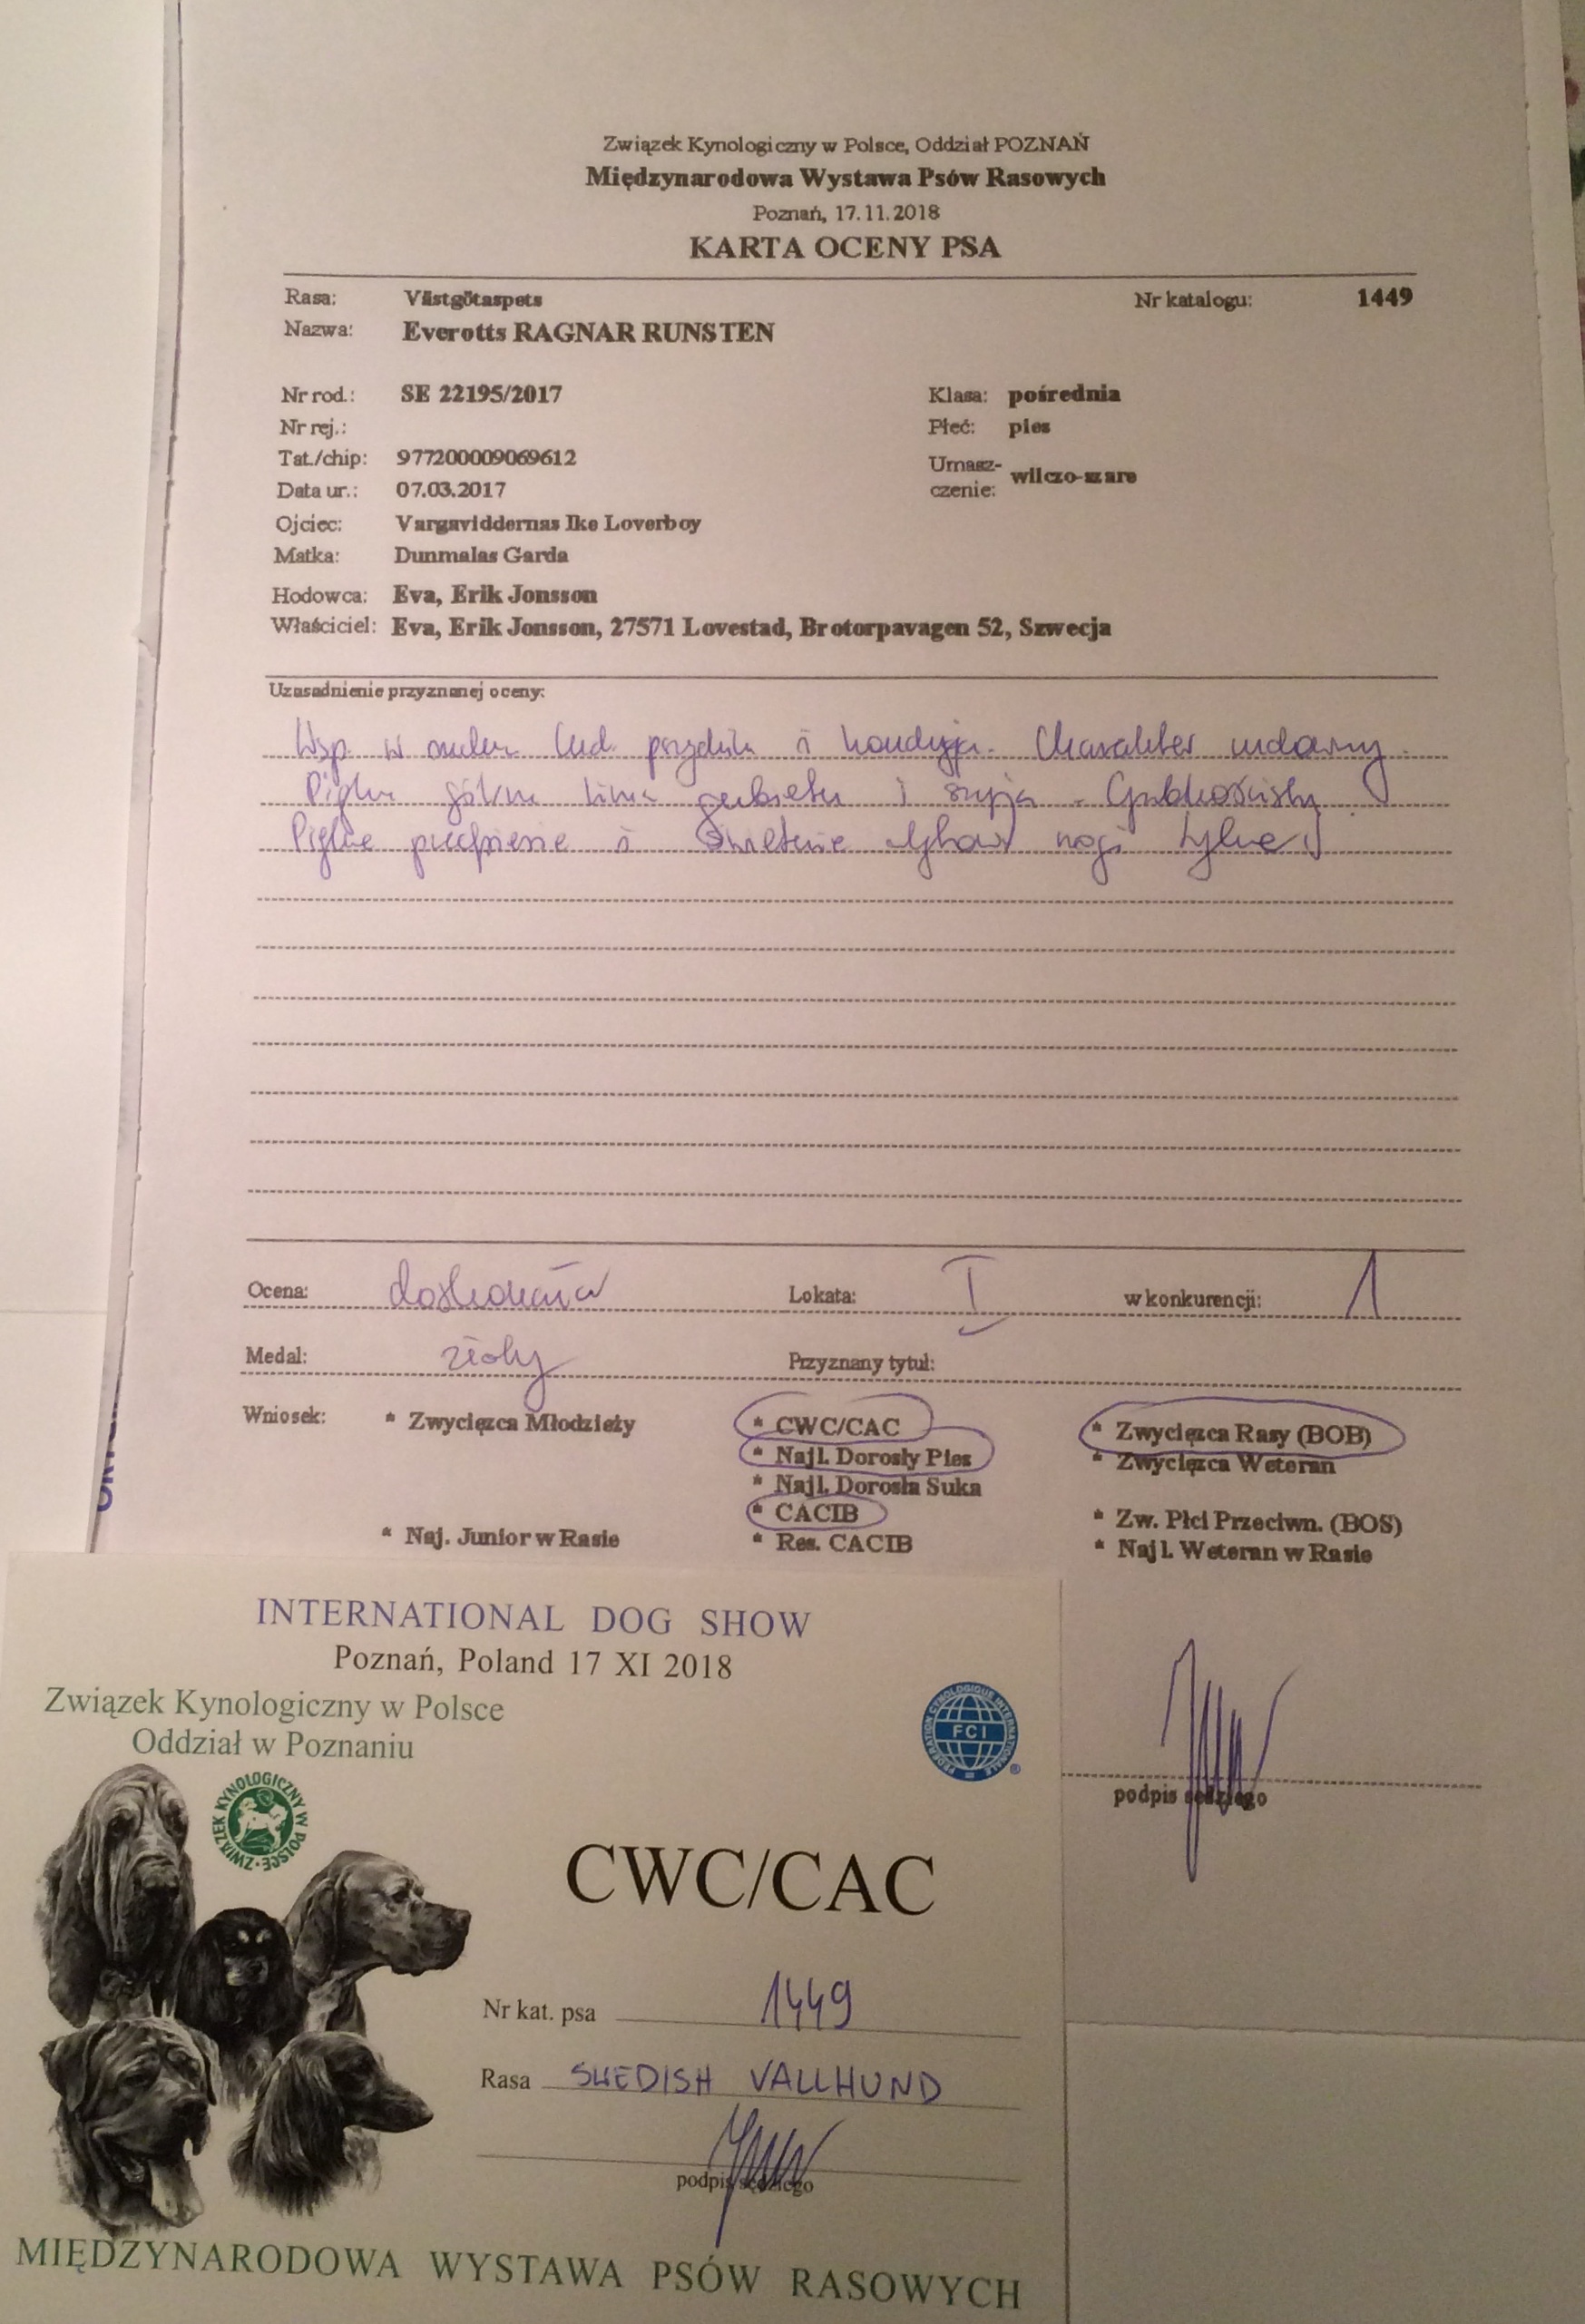 Związek Kynologiczny w Polsce, Oddział POZNAŃ
Międzynarodowa Wystawa Psów Rasowych
Poznań, 17.11.2018
KARTA OCENY PSA
Rasa: Västgötaspets Nr katalogu: 1449
Nazwa: Everotts RAGNAR RUNSTEN
Nr rod.: SE 22195/2017 Klasa: pośrednia
Nr rej.: Płeć: pies
Tat./chip: 977200009069612 Umasz-
Data ur.: 07.03.2017 czenie: wilczo-szare
Ojciec: Vargaviddernas Ike Loverboy
Matka: Dunmalas Garda
Hodowca: Eva, Erik Jonsson
Właściciel: Eva, Erik Jonsson, 27571 Lovestad, Brotorpavagen 52, Szwecja
Uzasadnienie przyznanej oceny:
Wsp. w i kondycja. Charakter
górna linia i szyja.
i nogi tylnej
Ocena: doskonała Lokata: I w konkurencji: 1
Medal: złoty Przyznany tytuł:
Wniosek: * Zwycięzca Młodzieży * CWC/CAC * Zwycięzca Rasy (BOB)
* Najl. Dorosły Pies * Zwycięzca Weteran
* Najl. Dorosła Suka
* CACIB * Zw. Płci Przeciwn. (BOS)
* Naj. Junior w Rasie * Res. CACIB * Najl. Weteran w Rasie
podpis sędziego
INTERNATIONAL DOG SHOW
Poznań, Poland 17 XI 2018
Związek Kynologiczny w Polsce
Oddział w Poznaniu
FEDERATION CYNOLOGIQUE INTERNATIONALE
FCI
ZWIĄZEK KYNOLOGICZNY W POLSCE
CWC/CAC
Nr kat. psa 1449
Rasa SWEDISH VALLHUND
podpis sędziego
MIĘDZYNARODOWA WYSTAWA PSÓW RASOWYCH